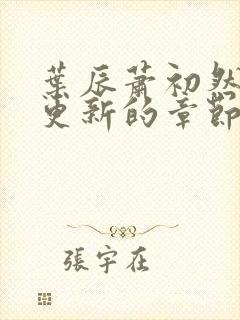 葉辰蕭初然
更新的章節
張宇在